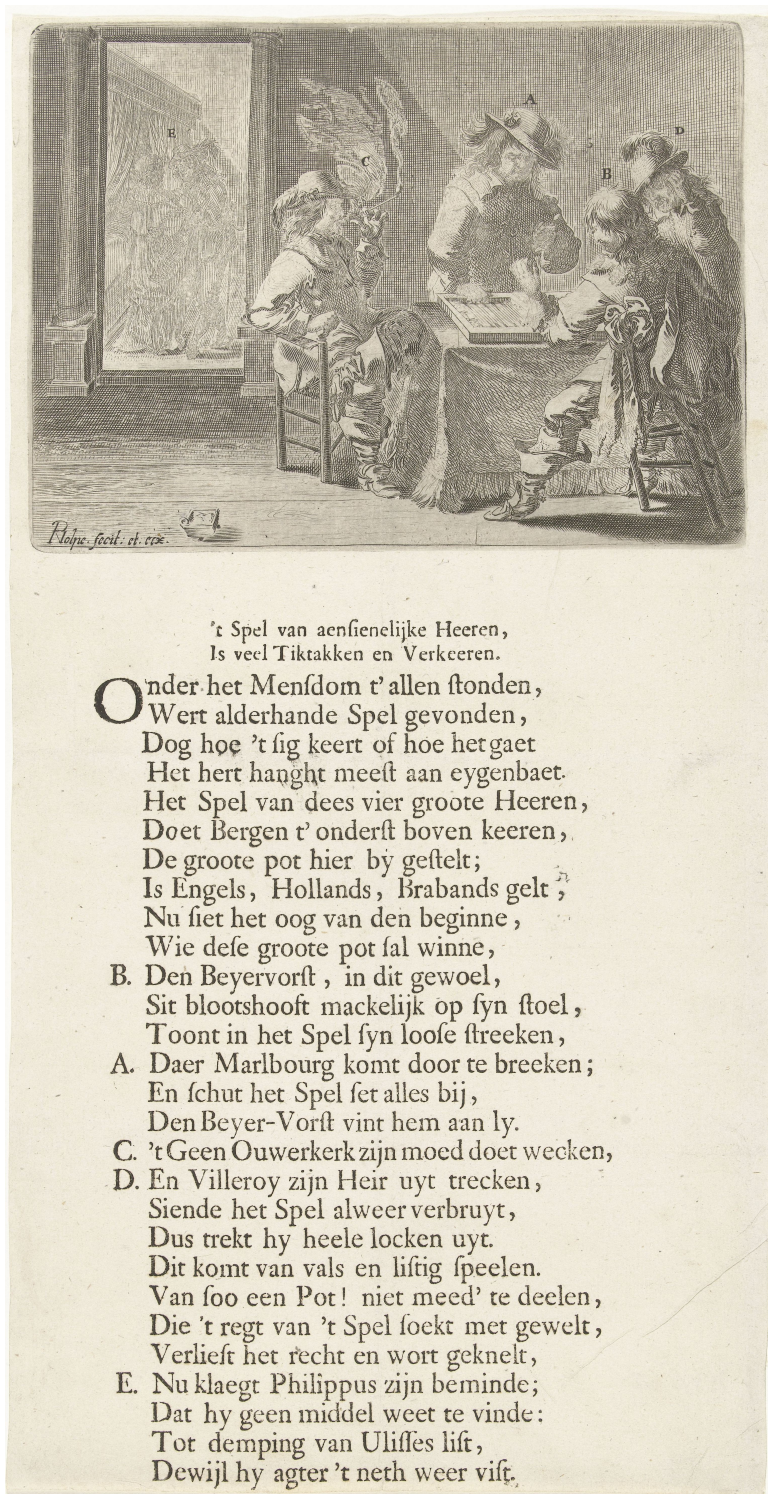 E
C
A
B
D
PNolpe. fecit. et. exc.
't Spel van aenſienelijke Heeren,
Is veel Tiktakken en Verkeeren.
Onder het Menſdom t' allen ſtonden,
Wert alderhande Spel gevonden,
Dog hoe 't ſig keert of hoe het gaet
Het hert hanght meeſt aan eygenbaet.
Het Spel van dees vier groote Heeren,
Doet Bergen t' onderſt boven keeren,
De groote pot hier by geſtelt;
Is Engels, Hollands, Brabands gelt,
Nu ſiet het oog van den beginne,
Wie deſe groote pot ſal winne,
B. Den Beyervorſt, in dit gewoel,
Sit blootshooft mackelijk op ſyn ſtoel,
Toont in het Spel ſyn looſe ſtreeken,
A. Daer Marlbourg komt door te breeken;
En ſchut het Spel ſet alles bij,
Den Beyer-Vorſt vint hem aan ly.
C. 't Geen Ouwerkerk zijn moed doet wecken,
D. En Villeroy zijn Heir uyt trecken,
Siende het Spel alweer verbruyt,
Dus trekt hy heele locken uyt.
Dit komt van vals en liſtig ſpeelen.
Van ſoo een Pot! niet meed' te deelen,
Die 't regt van 't Spel ſoekt met gewelt,
Verlieſt het recht en wort geknelt,
E. Nu klaegt Philippus zijn beminde;
Dat hy geen middel weet te vinde:
Tot demping van Uliſſes liſt,
Dewijl hy agter 't neth weer viſt.